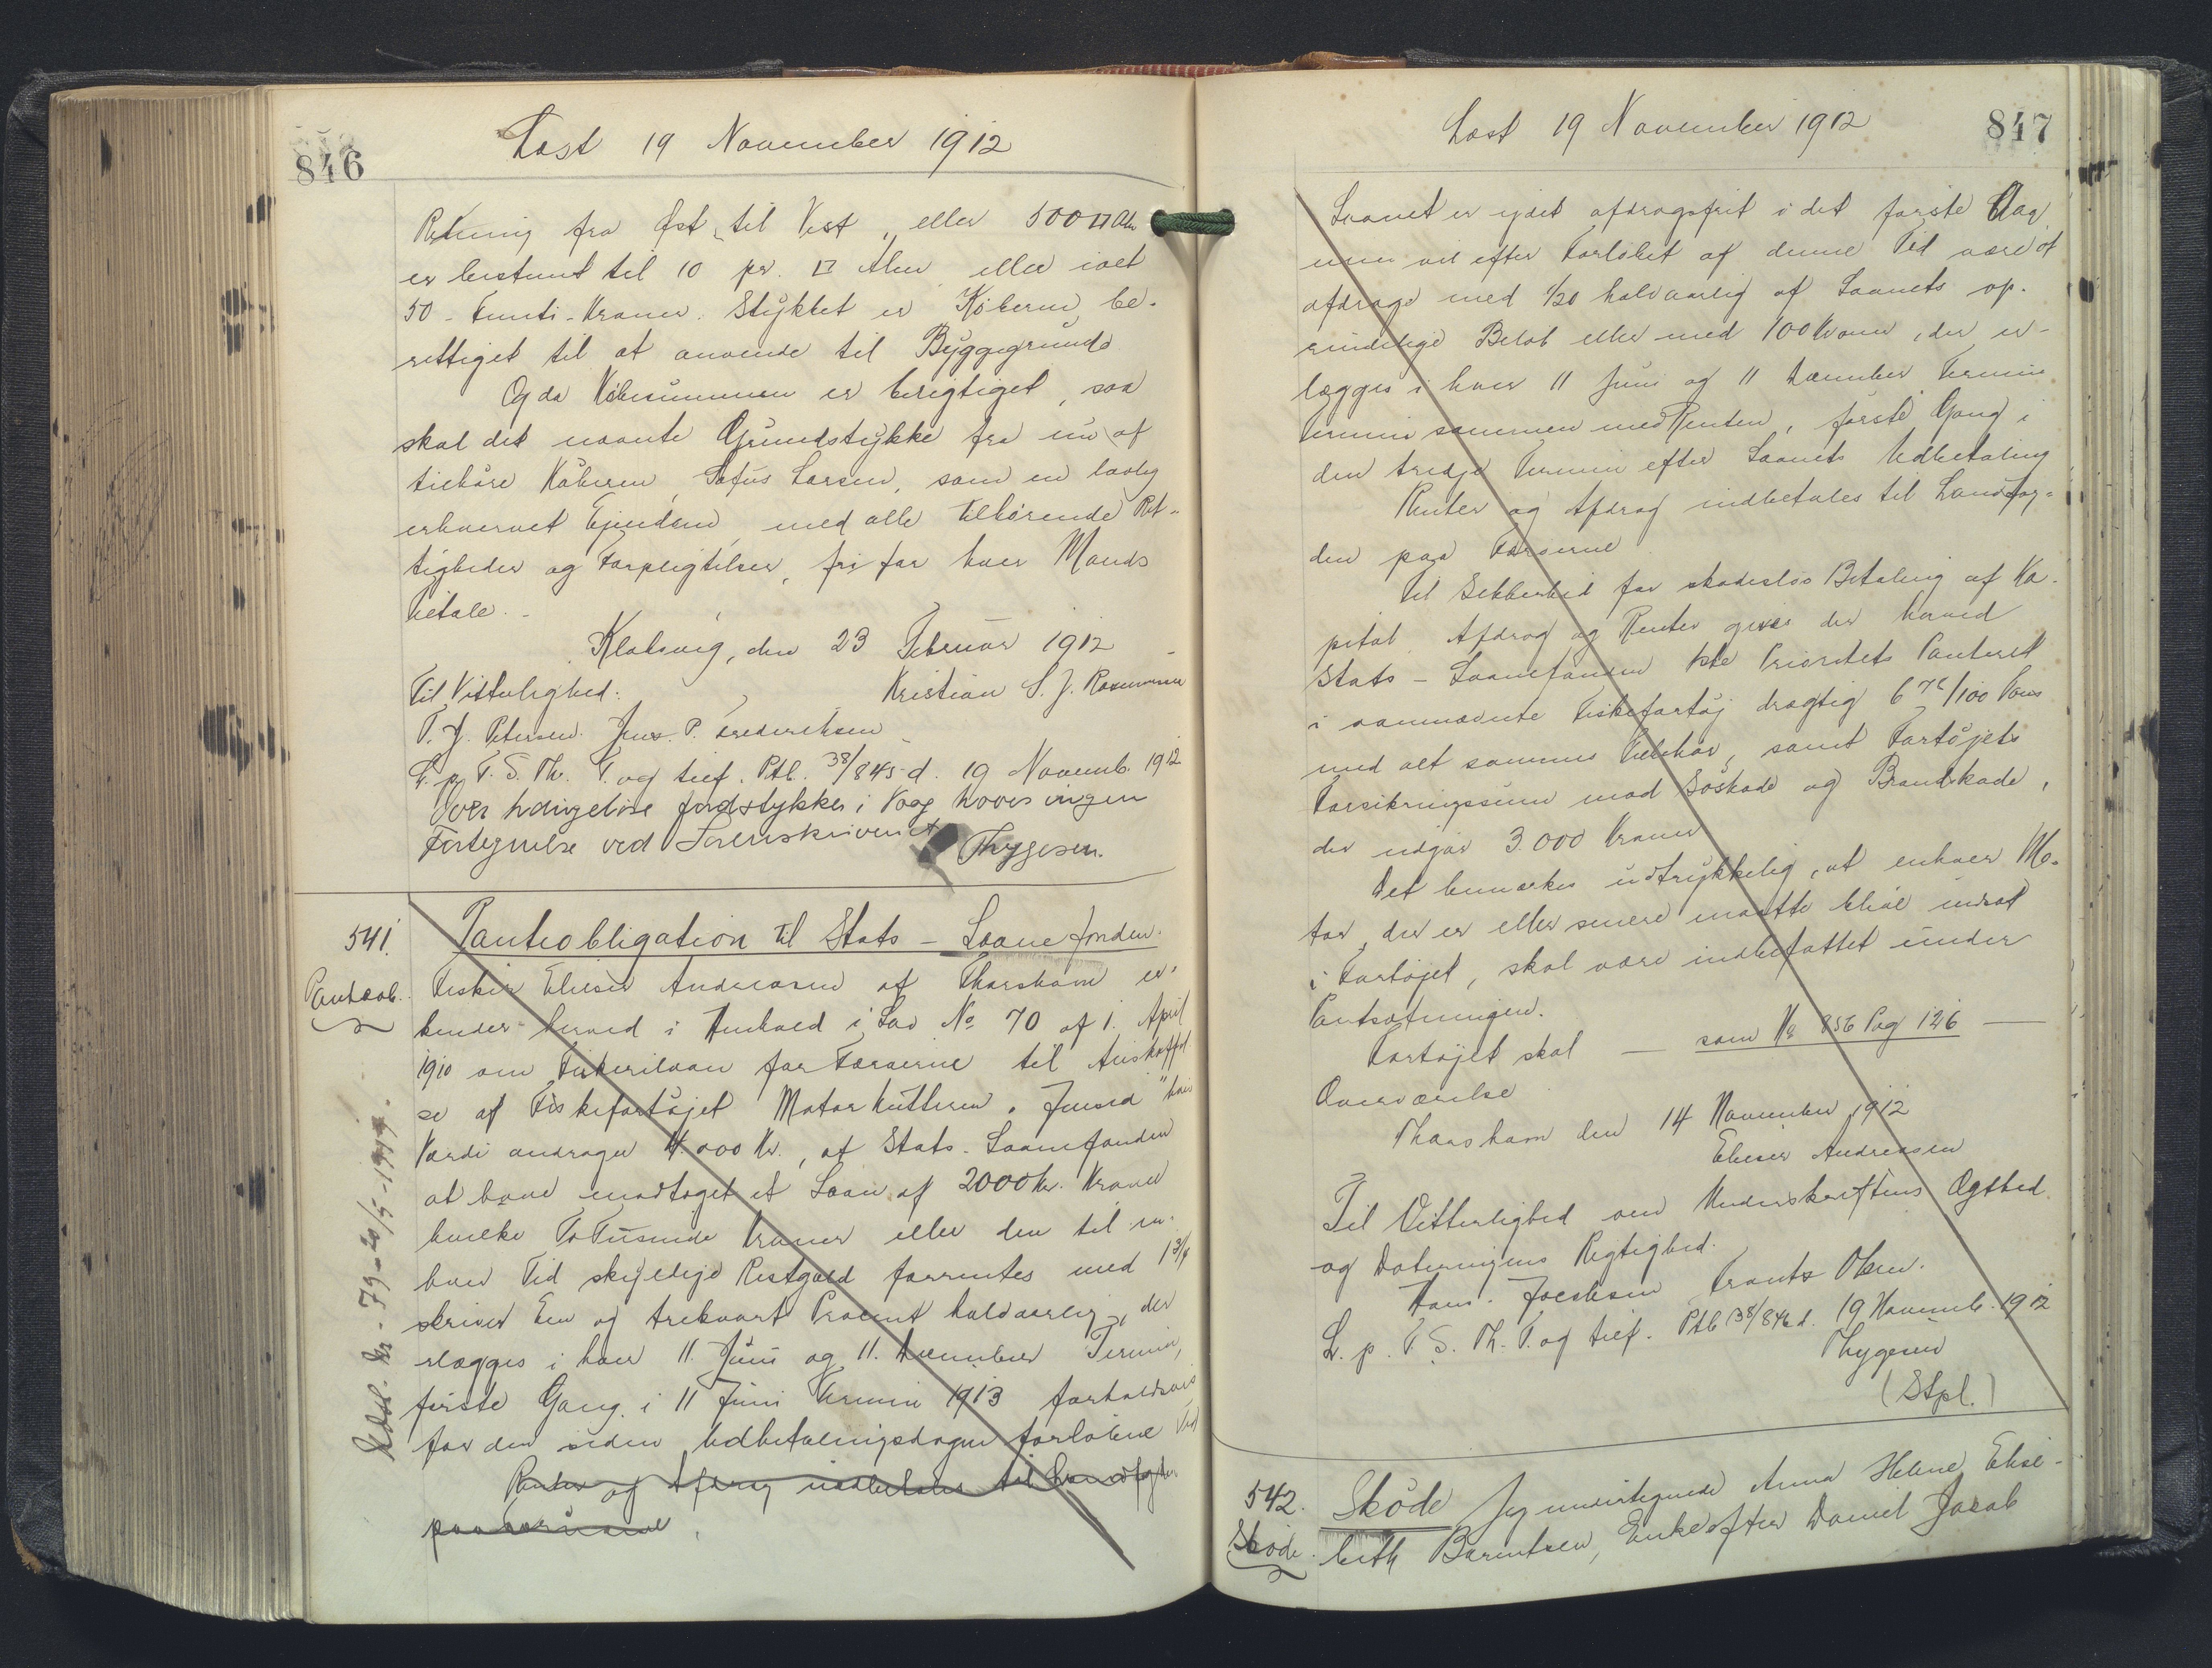 846
Læst 19 November 1912
Retning fra Øst til Vest, eller 500 □ Aln
er bestemt til 10 pr. □ Alen eller ialt
50 - Femti - Kroner. Stykket er Køberen be-
rettiget til at anvende til Byggegrund
Og da Købesummen er berigtiget, saa
skal det nævnte Grundstykke fra nu af
tilhøre Køberen, Sofus Larsen, som en lovlig
erhvervet Ejendom, med alle tilhørende Ret-
tigheder og Forpligtelser, fri for hver Mands
Tiltale.
Klaksvig, den 23 Februar 1912
Til Vitterlighed:
Kristian S. J. Rasmussen
P. J. Petersen. Jens. P. Frederiksen
L. p. F. S. Th. T. og tief. Ptb. 38/845 d. 19 Novemb. 1912
Over hovedløse Jordstykker i Vaag haves ingen
Fortegnelse ved Sorenskriveriet
Thygesen.
541.
Pantobl.
Pantobligation til Stats - Laanefonden.
Fisker Elieser Andreasen af Thorshavn er-
kender herved i Henhold i Lov No 70 af 1. April
1910 om Fiskerilaan for Færøerne til Anskaffel
se af Fiskefartøjet Motorkutteren "Jnusd" hvis
Værdi andrager 4.000 Kr., af Stats-Laanefonden
at have modtaget et Laan af 2000 Kr. Kroner
hvilke To Tusinde Kroner eller den til en-
hver Tid skyldige Restgæld forrentes med 1 3/4
skriver Een og trekvart Procent halvaarlig, der
erlægges i hver 11. Juni og 11. December Termin,
første Gang i 11 Juni Termin 1913 forholdsvis
for den siden Udbetalingsdagen forløbne Tid
Renter og Afdrag indbetales til Landfogden
paa Færøerne
847
Læst 19 November 1912
Laanet er ydet afdragsfrit i det første Aar
men vil efter Forløbet af denne Tid være at
afdrage med 1/20 halvaarlig af Laanets op-
rindelige Beløb eller med 100 Kroner, der er-
lægges i hver 11 Juni og 11 December Termin
Termin sammen med Renten, første Gang i
den tredje Termin efter Laanets Udbetaling
Renter og Afdrag indbetales til Landfog-
den paa Færøerne
Til Sikkerhed for skadesløs Betaling af Ka-
pital, Afdrag og Renter gives der herved
Stats - Laanefonden 1ste Prioritets Panteret
i ovennævnte Fiskefartøj drægtig 6 76/100 Tons
med alt sammes Tilbehør, samt Fartøjets
Forsikringssum mod Søskade og Brandskade,
der udgør 3.000 Kroner
Det bemærkes udtrykkelig, at enhver Mo-
tor, der er eller senere maatte blive indsat
i Fartøjet, skal være indbefattet under
Pantsætningen.
Fartøjet skal — som No 856 Pag 126 —
Overværelse
Thorshavn den 14 November 1912
Elieser Andreasen
Til Vitterlighed om Underskriftens Ægthed
og Dateringens Rigtighed.
Hans. Jacobsen Frants Olsen.
L. p. F. S. Th. T. og tief. Ptb 38/846 d. 19 Novemb. 1912
Thygesen
(Stpl.)
542.
Skøde.
Skøde Jeg undertegnede Anna Helene Elise-
beth Berentsen, Enke efter Daniel Jacob